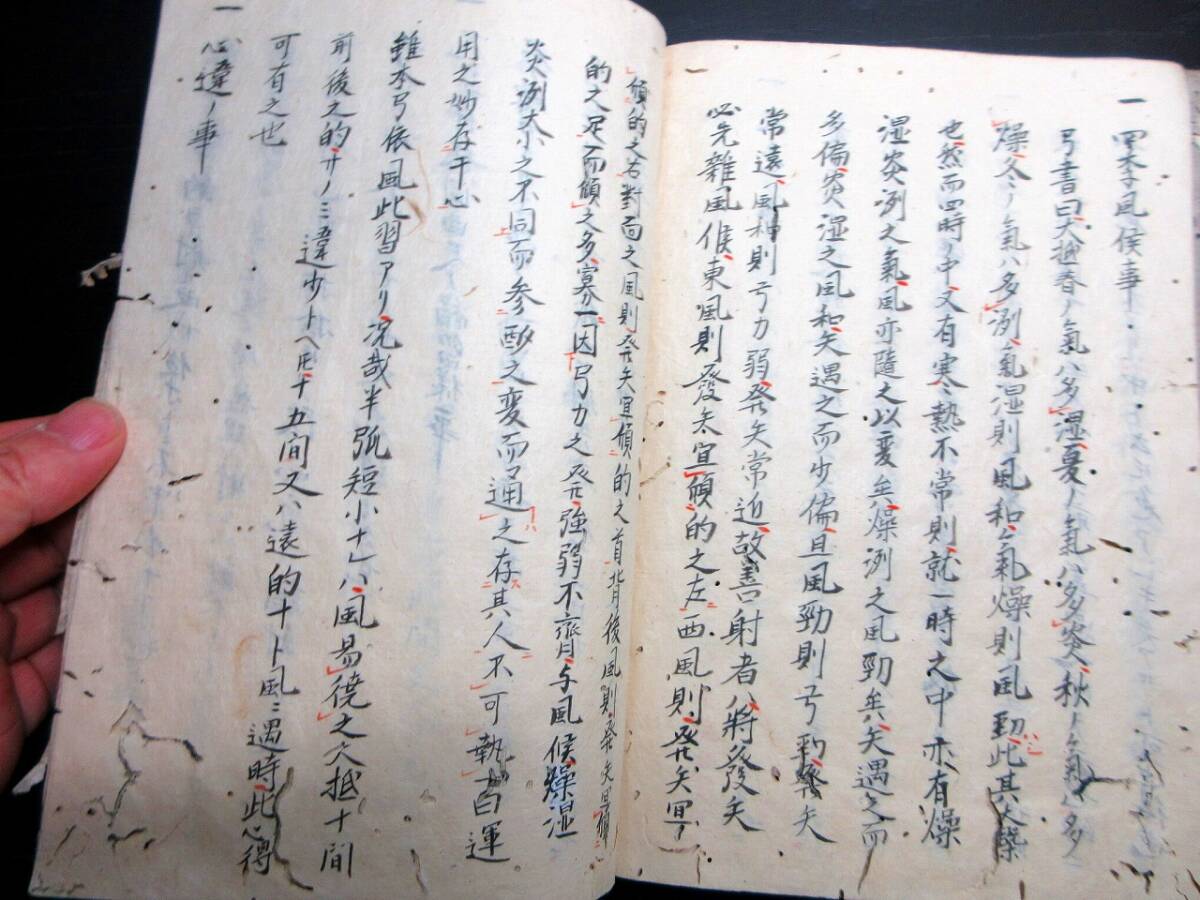 一 四季風候事
弓書曰大抵春ノ氣ハ多湿夏ノ氣ハ多炎秋ノ氣ハ多
燥冬ノ氣ハ多冽氣湿則風和氣燥則風勁此其大槩
也然而四時ノ中又有寒熱不常則就一時之中亦有燥
湿炎冽之氣風亦隨之以変矣燥冽之風勁矣矢遇之而
多偏炎湿之風和矢遇之而少偏且風勁則弓勁發矢
常遠風和則弓力弱発矢常近故善射者ハ將發矢
必先雜風候東風則發矢宜傾的之左西風則発矢宜
傾的之右對面之風則発矢宜傾的之首背後風則発矢宜傾
的之足而傾之多寡一因弓力之発強弱不齊与風候燥湿
炎冽大小之不同而参酌之変而通之存其人不可執固運
用之妙存干心
雖本弓依風此習アリ况哉半弧短小ナレハ風易徺之大抵十間
前後之的サノミ違少トヘ𪜈十五間又ハ遠的ナト風ニ遇時此心得
可有之也
一 心違ノ事